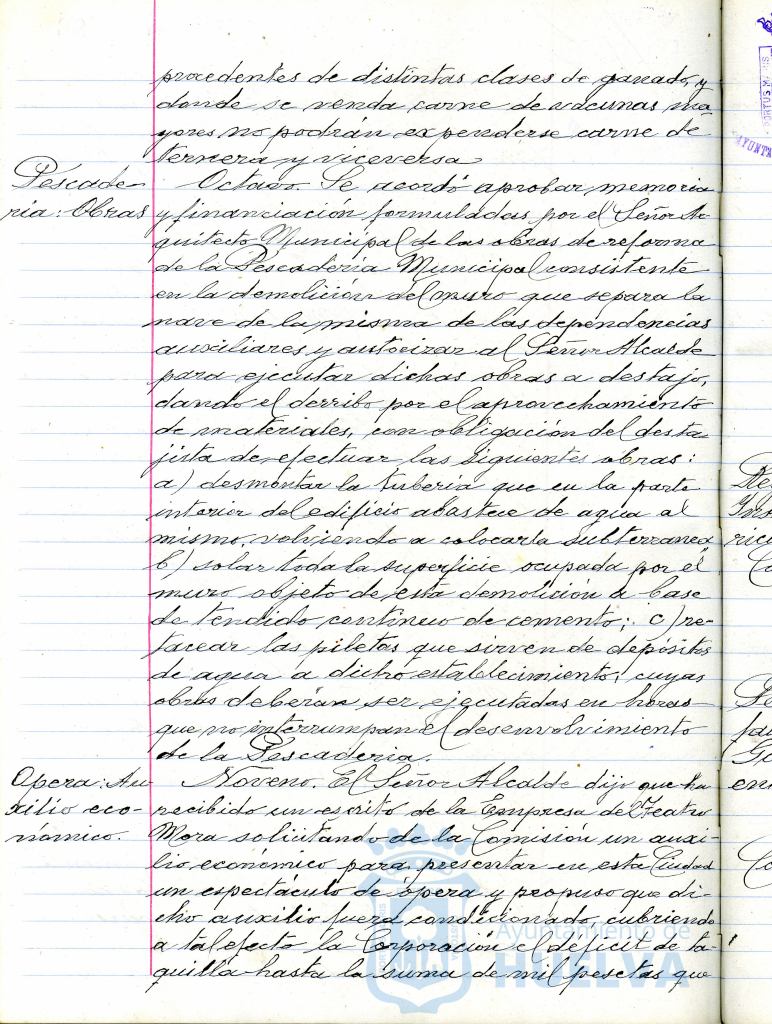 procedentes de distintas clases de ganado, y
donde se venda carne de vacunas ma
yores no podrán expenderse carne de
ternera y viceversa
Pescade-
ría: Obras
Octavo. Se acordó aprobar memoria
y financiación formuladas por el Señor Ar-
quitecto Municipal de las obras de reforma
de la Pescadería Municipal consistente
en la demolición del muro que separa la
nave de la misma de las dependencias
auxiliares y autorizar al Señor Alcalde
para ejecutar dichas obras a destajo,
dando el derribo por el aprovechamiento
de materiales, con obligación del desta-
jista de efectuar las siguientes obras:
a) desmontar la tubería que en la parte
interior del edificio abastece de agua al
mismo, volviendo a colocarla subterranea
b) solar toda la superficie ocupada por el
muro objeto de esta demolición a base
de tendido continuo de cemento; c) re-
tacear las piletas que sirven de depósitos
de agua a dicho establecimiento; cuyas
obras deberán ser ejecutadas en horas
que no interrumpan el desenvolvimiento
de la Pescadería.
Opera: Au-
xilio eco-
nómico.
Noveno. El Señor Alcalde dijo que ha
recibido un escrito de la Empresa del Teatro
Mora solicitando de la Comisión un auxi-
lio económico para presentar en esta Ciudad
un espectáculo de ópera y propuso que di-
cho auxilio fuera condicionado, cubriendo
a tal efecto la Corporación el déficit de ta-
quilla hasta la suma de mil pesetas que
Ayuntamiento de
HUELVA